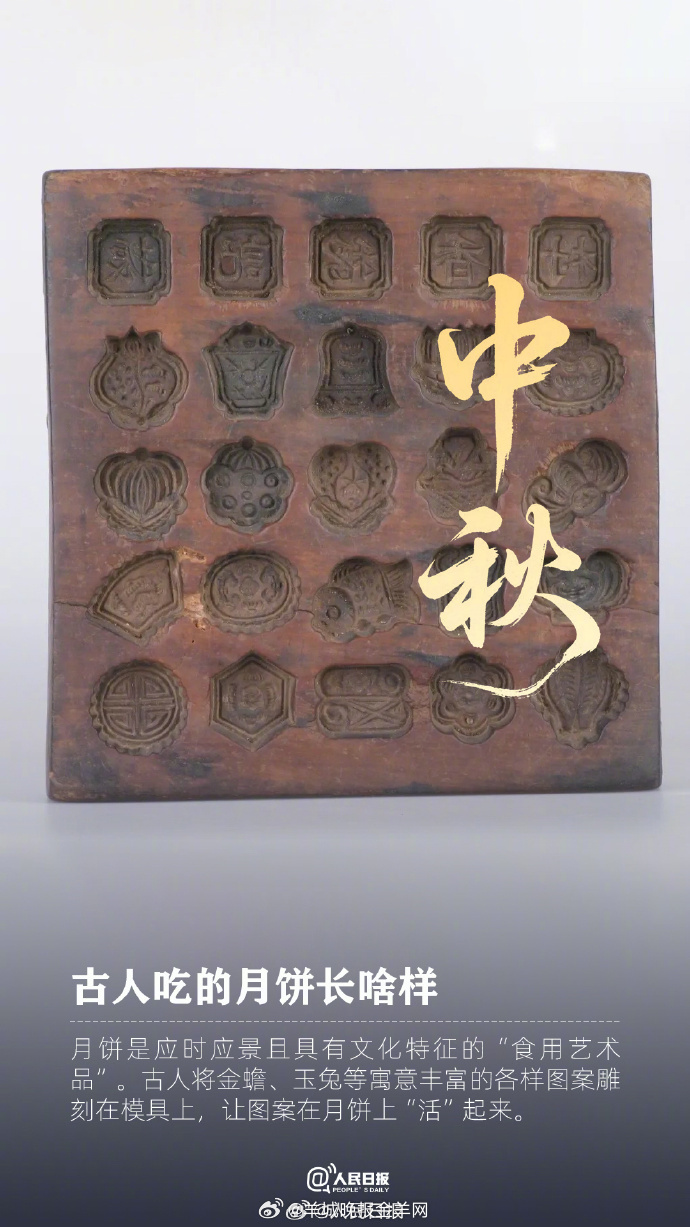 中秋
古人吃的月饼长啥样
月饼是应时应景且具有文化特征的“食用艺术
品”。古人将金蟾、玉兔等寓意丰富的各样图案雕
刻在模具上，让图案在月饼上“活”起来。
@人民日报
PEOPLE'S DAILY
@羊城晚报金羊网